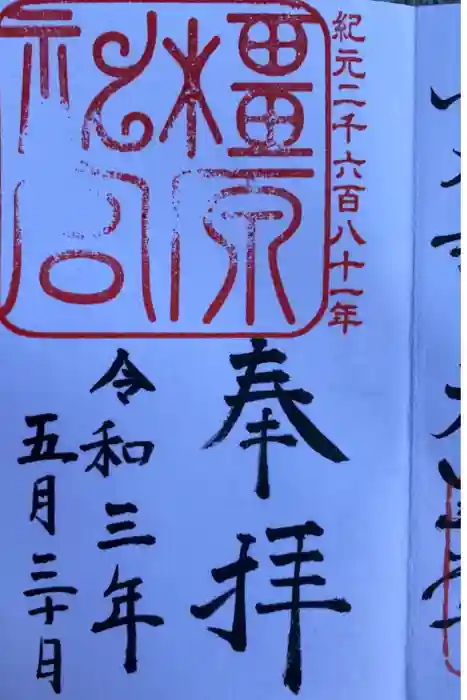 紀元二千六百八十一年
橿原
神宮
奉拝
令和三年
五月三十日